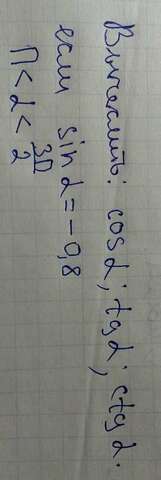 Вычислить: cos α; tg α; ctg α.
если sin α = -0,8
π < α < 3π/2